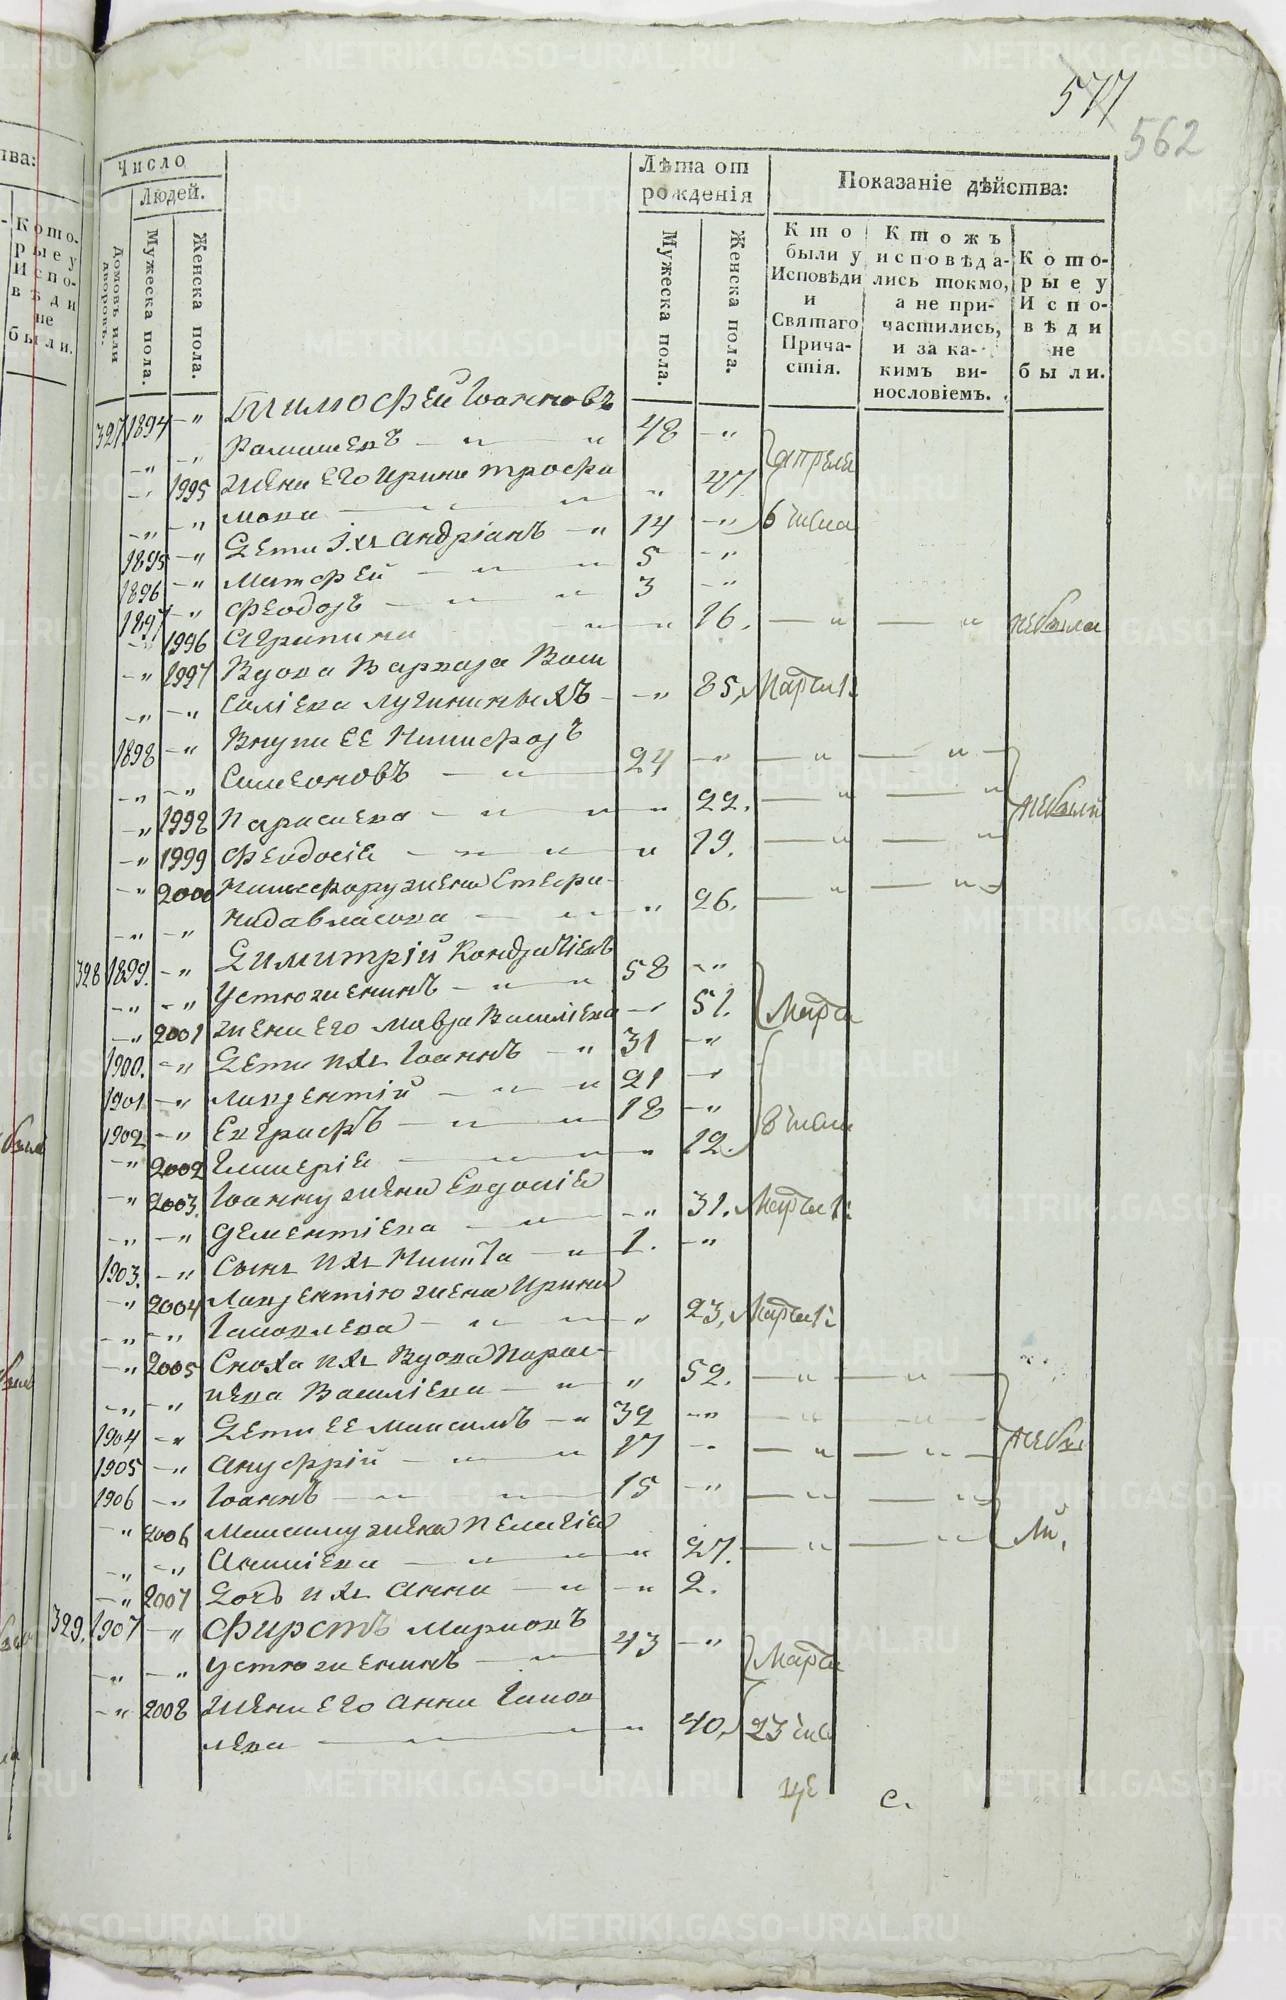 577
562
Число
Людей.
Домовъ или дворовъ.
Мужеска пола.
Женска пола.
Лѣта отъ рожденія
Мужеска пола.
Женска пола.
Показаніе дѣйства:
Кто были у Исповѣди и Святаго Причастія.
Ктожъ исповѣдались токмо, а не причастились, и за какимъ винословіемъ.
Которые у Исповѣди не были.
327 1894 -" Тимофей Іоанновъ
-" -" Ромашевъ -" " 48 -" апреля
-" 1995 жена его Ирина Трофи " 47
-" -" мова -" 6 числа
1895 -" Дети их Андріанъ -" 14 -"
1896 -" Матфей -" " 5 -"
1897 -" Феодоръ -" " 3 -"
-" 1996 Агрипина -" " 16. -" -" небыла
-" 1997 Вдова Варвара Васи
-" -" силіева Лучининыхъ -" 85, Марта
1898 -" Внуки ее Никифоръ
-" -" Симеоновъ -" 24 -" -" -"
-" 1998 Параскева -" " " 22. -" -" небыли
-" 1999 Феодосіа -" " " 19. -" -"
-" 2000 Никифору жена Степа-
-" -" нида Власова -" " 26. -" -"
328 1899. -" Димитрій Кондратіевъ
-" -" Устюженинъ -" " 58 -"
-" 2001 жена его Мавра Василіева -" 51. Марта
1900. -" Дети их Іоаннъ -" 31 -"
1901 -" Лаврентій -" " 21 -"
1902 -" Евграфъ -" 18 -" 8 числа
-" 2002 Гликеріа -" " 12.
-" 2003. Іоанну жена Евдокіа
-" -" Дементіева -" -" 31. Марта
1903. -" Сынъ их Никита -" 1. -"
-" 2004 Лаврентію жена Ирина
-" -" Іаковлева -" " " 23, Марта
-" 2005 Сноха их вдова Парас-
-" -" кева Василіева -" " 52. -" -"
1904 -" Дети ее Максимъ -" 32 -" -" -" небы
1905 -" Ануфрій -" " 17 -" -" -"
1906 -" Іоаннъ -" 15 -" -" -"
-" 2006 Максиму жена Пелагіа ли,
-" -" -" " 27. -" -"
-" 2007 Дочь их Анна -" -" 2.
329. 1907 -" Фирстъ Марковъ
-" -" Устюженинъ -" 43 -" Марта
-" 2008 жена его Анна Іаков
лева -" " 40, 23 числа
с.
METRIKI.GASO-URAL.RU